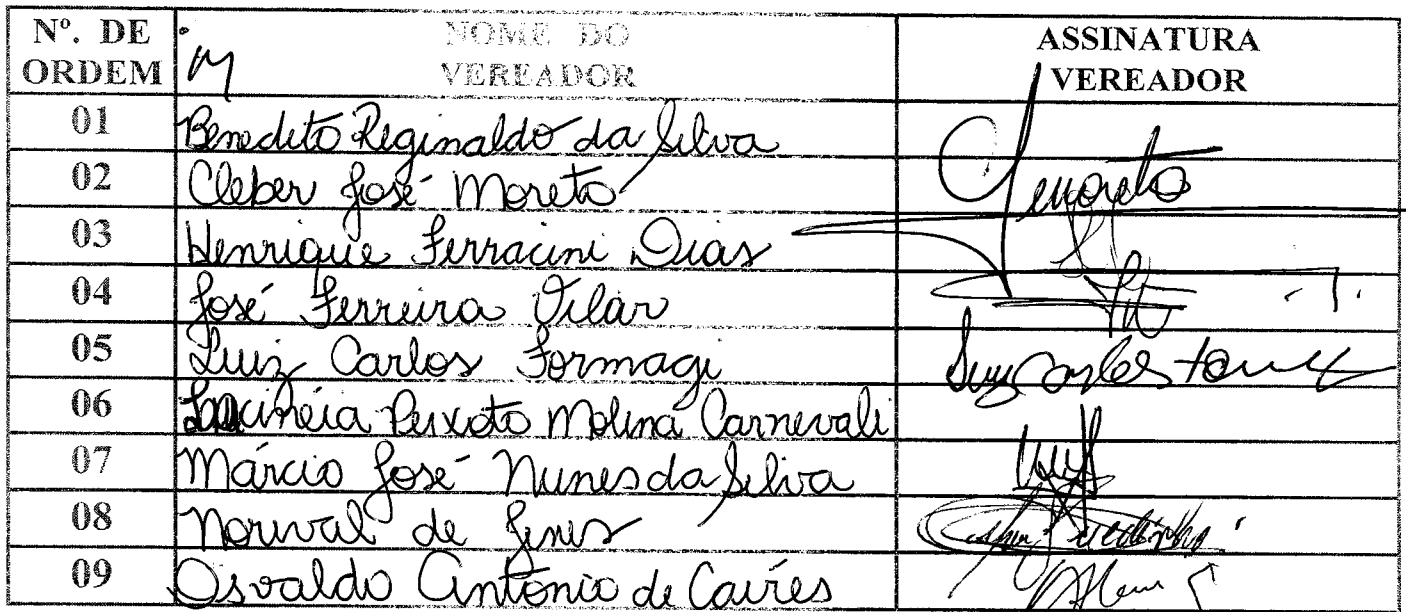 Nº. DE ORDEM
NOME DO VEREADOR
ASSINATURA VEREADOR
01 Benedito Reginaldo da Silva
02 Cleber José Moreto
03 Henrique Ferracini Dias
04 José Ferreira Vilar
05 Luiz Carlos Formagi Luiz Carlos
06 Peixoto Molina Carnevali
07 Márcio José Nunes da Silva
08 Norival de
09 Osvaldo Antônio de Caires